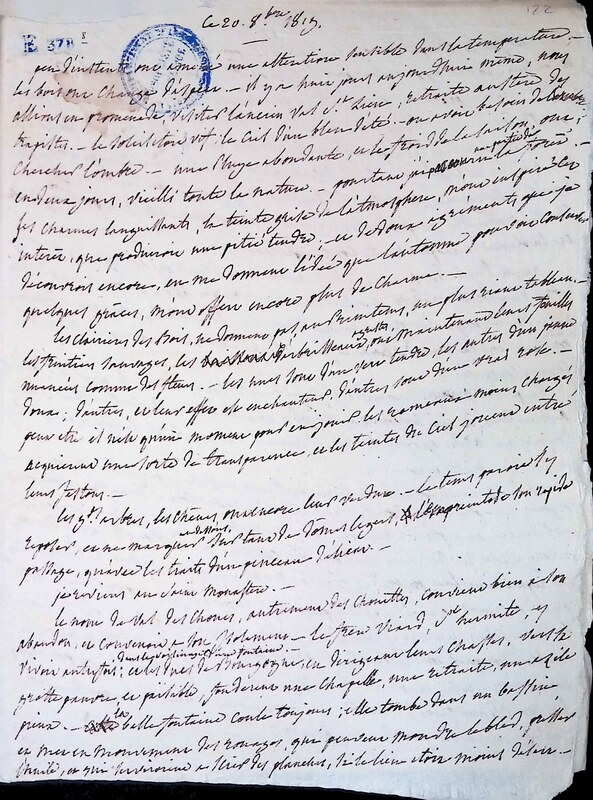 Ce 20. 8bre 1819.
122
E 378
8
peu d'instants ont amené une altération sensible dans la température. -
les bois ont changé d'aspect - il y a huit jours aujourd'hui même, nous
allions en promenade visiter l'ancien Val St. lieu, retraite austère des
trapistes. - le soleil étoit vif: le Ciel d'un bleu d'été. - on avoit besoin de
chercher l'ombre. - une pluye abondante, et le froid de la saison, ont,
en deux jours, vieilli toute la nature. - pourtant j'ai parcouru la forêt.
ses charmes languissants, la teinte grise de l'atmosphère, m'ont inspiré cet
intérêt, que produiroit une pitié tendre; et de doux agréments que je
découvrois encore, en me donnant l'idée que l'automne pouvoit conserver
quelques grâces, m'ont offert encore plus de charme. -
les clairières des bois, ne donnent pas au Printems, un plus riant tableau.
les fruitiers sauvages, les arbrisseaux ont maintenant leurs feuilles
nuancées comme des fleurs. - les unes sont d'un vert tendre, les autres d'un jaune
doux; d'autres, et leur effet est enchanteur, d'autres sont d'un vrai rose. -
peut être il n'est qu'un moment pour en jouir. les rameaux moins chargés
acquierent une sorte de transparence, et les teintes du Ciel jouent entre
leurs festons. -
les gds. arbres, les chênes, ont encore leur verdure. - le tems paroit s'y
reposer, et ne marquer au dessus, sur tant de dômes legers, l'empreinte de son rapide
passage, qu'avec les traits d'un pinceau délicat. -
je reviens au Saint Monastère. -
le nom de Val des Choues, autrement des Chouettes, convient bien à son
abandon, et convenoit à son isolement - le frère Viard, St. hermite, y
vivoit autrefois; et les ducs de Bourgogne, en dirigeant leurs chasses, vers sa
grotte pauvre et paisible, fonderent une chapelle, une retraite, un azile
pieux. - la belle fontaine coule toujours; elle tombe dans un bassin
et met en mouvement des rouages, qui peuvent moudre le bled, presser
l'huile, et qui serviroient à scier des planches, si le lieu étoit moins désert. -